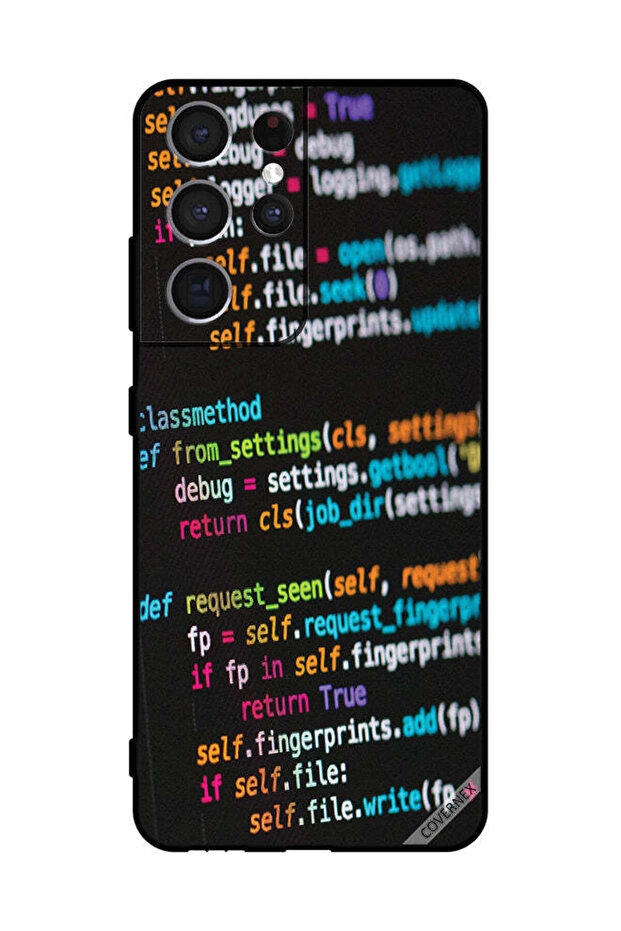 self.fingerpr
self.logdupes = True
self.debug = debug
self.logger = logging.getLogge
if path:
self.file = open(os.path.
self.file.seek(0)
self.fingerprints.update
classmethod
ef from_settings(cls, settings
debug = settings.getbool("
return cls(job_dir(settings
def request_seen(self, request
fp = self.request_fingerpr
if fp in self.fingerprints
return True
self.fingerprints.add(fp)
if self.file:
self.file.write(fp
COVERNEX